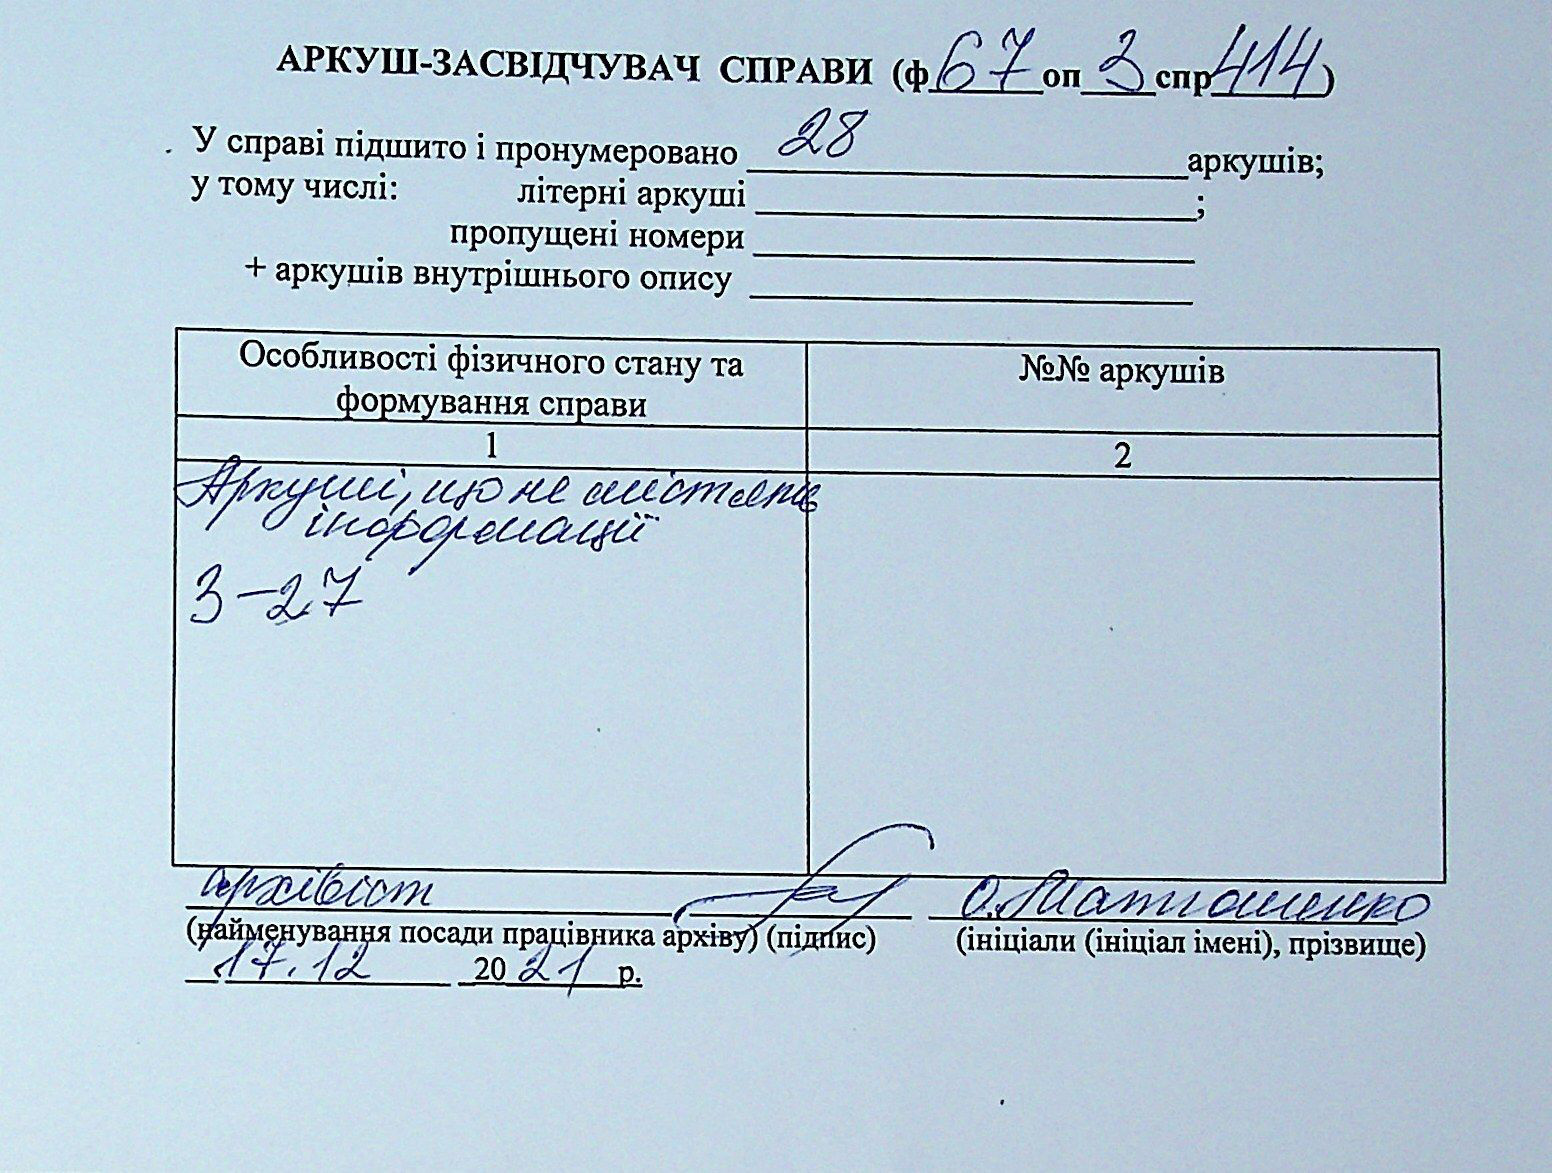 АРКУШ-ЗАСВІДЧУВАЧ СПРАВИ (ф 67 оп 3 спр 414)
У справі підшито і пронумеровано 28 аркушів;
у тому числі: літерні аркуші ;
пропущені номери
+ аркушів внутрішнього опису
Особливості фізичного стану та формування справи
№№ аркушів
1 2
Аркуші, що не містять
інформації
3-27
архівіст О. Матюшенко
(найменування посади працівника архіву) (підпис) (ініціали (ініціал імені), прізвище)
17.12 2021 р.